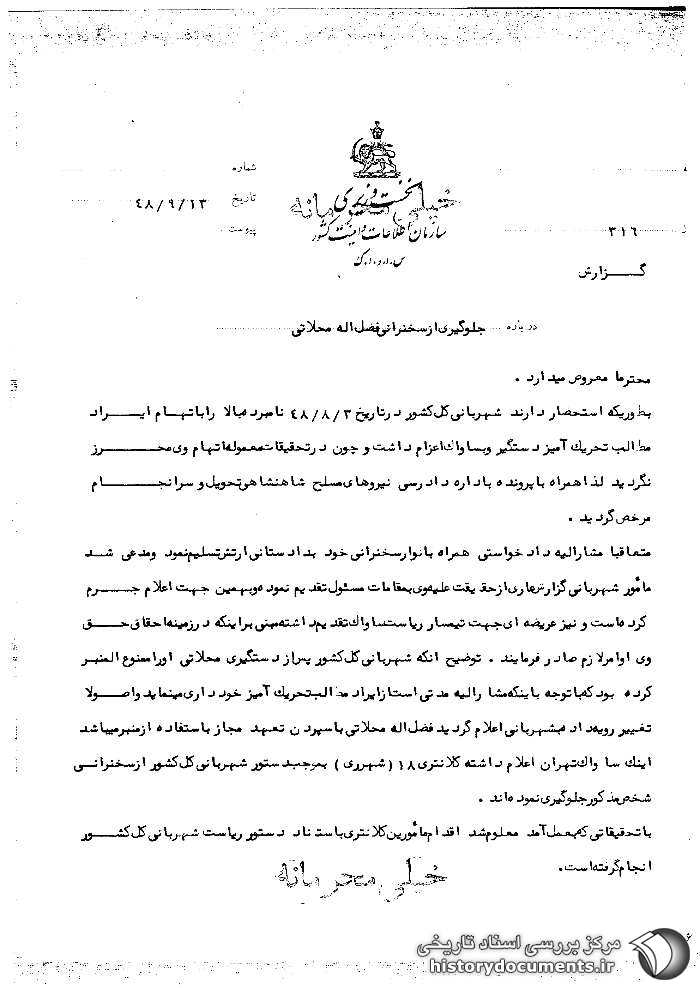 شماره
نخست وزیری
خیلی محرمانه
تاریخ ۴۸/۹/۱۳
سازمان اطلاعات و امنیت کشور
پیوست
۳۱۶
س.ا.و.ا.ک
گزارش
درباره جلوگیری از سخنرانی فضل اله محلاتی
محترما معروض میدارد .
بطوریکه استحضار دارند شهربانی کل کشور در تاریخ ۴۸/۸/۳ نامبرده بالا را باتهام ایراد
مطالب تحریک آمیز دستگیر و بساواک اعزام داشت و چون در تحقیقات معموله اتهام وی محرز
نگردید لذا همراه با پرونده باداره دادرسی نیروهای مسلح شاهنشاهی تحویل و سرانجام
مرخص گردید .
متعاقبا مشارالیه دادخواستی همراه با نوار سخنرانی خود بدادستانی ارتش تسلیم نمود و مدعی شد
مأمور شهربانی گزارش عاری از حقیقت علیه وی بمقامات مسئول تقدیم نموده و بهمین جهت اعلام جرم
کرده است و نیز عریضه ای جهت تیمسار ریاست ساواک تقدیم داشته مبنی بر اینکه در زمینه احقاق حق
وی اوامر لازم صادر فرمایند . توضیح آنکه شهربانی کل کشور پس از دستگیری محلاتی او را ممنوع المنبر
کرده بود که با توجه باینکه مشارالیه مدتی است از ایراد مطالب تحریک آمیز خودداری مینماید و اصولا
تغییر رویه داده بشهربانی اعلام گردید فضل اله محلاتی با سپردن تعهد مجاز باستفاده از منبر میباشد
اینک ساواک تهران اعلام داشته کلانتری ۱۸ (شهرری) بموجب دستور شهربانی کل کشور از سخنرانی
شخص مذکور جلوگیری نموده اند .
با تحقیقاتی که بعمل آمد معلوم شد اقدام مأمورین کلانتری باستناد دستور ریاست شهربانی کل کشور
انجام گرفته است .
خیلی محرمانه
مرکز بررسی اسناد تاریخی
historydocuments.ir